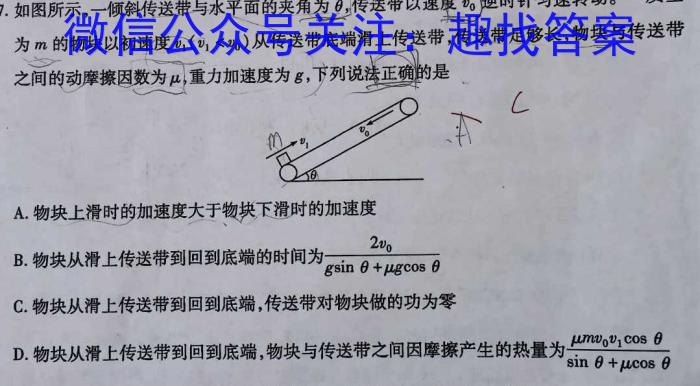 7. 如图所示,一倾斜传送带与水平面的夹角为θ,传送带以速度v₀逆时针匀速转动。
微信公众号关注:趣找答案
为m的物块以初速度v₁(v₁ v₀)从传送带底端滑上传送带,传送带足够长,物块与传送带
之间的动摩擦因数为μ,重力加速度为g,下列说法正确的是
m v₁ v₀ θ A C
A. 物块上滑时的加速度大于物块下滑时的加速度
B. 物块从滑上传送带到回到底端的时间为2v₀/(gsin θ+μgcos θ)
C. 物块从滑上传送带到回到底端,传送带对物块做的功为零
D. 物块从滑上传送带到回到底端,物块与传送带之间因摩擦产生的热量为μmv₀v₁cos θ/(sin θ+μcos θ)